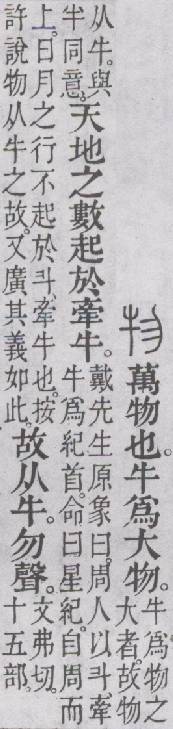 物
萬物也。牛爲大物。
牛爲物之
大者。故物
从牛。與
半同意。
天地之數起於牽牛。
戴先生原象曰。周人以斗、牽
牛爲紀首。命曰星紀。自周而
上。日月之行不起於斗、牽牛也。按
許說物从牛之故。又廣其義如此。
故从牛。勿聲。
文弗切。
十五部。